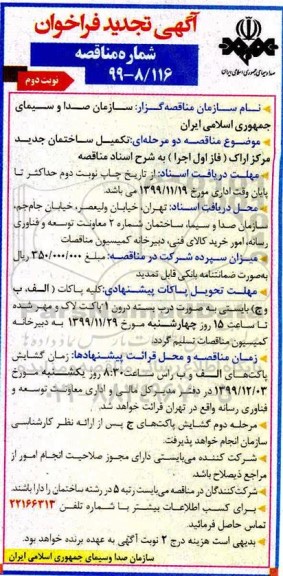 آگهی تجدید فراخوان
شماره مناقصه
۹۹-۸/۱۱۶
نوبت دوم
صدا و سیمای جمهوری اسلامی ایران
نام سازمان مناقصه‌گزار: سازمان صدا و سیمای
جمهوری اسلامی ایران
موضوع مناقصه دو مرحله‌ای: تکمیل ساختمان جدید
مرکز اراک ( فاز اول اجرا ) به شرح اسناد مناقصه
مهلت دریافت اسناد: از تاریخ چاپ نوبت دوم حداکثر تا
پایان وقت اداری مورخ ۱۳۹۹/۱۱/۱۹ می باشد.
محل دریافت اسناد: تهران، خیابان ولیعصر، خیابان جام‌جم،
سازمان صدا و سیما، ساختمان شماره ۲ معاونت توسعه و فناوری
رسانه، امور خرید کالای فنی، دبیرخانه کمیسیون مناقصات
میزان سپرده شرکت در مناقصه: مبلغ ۳۵۰/۰۰۰/۰۰۰ ریال
به‌صورت ضمانتنامه بانکی قابل تمدید
مهلت تحویل پاکات پیشنهادی: کلیه پاکات ( الف، ب
و ج) بایستی به صورت درب بسته درون پاکت لاک و مهر شده
تا ساعت ۱۵ روز چهارشنبه مورخ ۱۳۹۹/۱۱/۲۹ به دبیرخانه
کمیسیون مناقصات تسلیم گردد.
زمان مناقصه و محل قرائت پیشنهادها: زمان گشایش
پاکت‌های الف و ب راس ساعت ۸:۳۰ روز یکشنبه مورخ
۱۳۹۹/۱۲/۰۳ در دفتر مدیرکل مالی و اداری معاونت توسعه و
فناوری رسانه واقع در تهران قرائت خواهد شد.
مرحله دوم گشایش پاکت‌های ج پس از ارائه نظر کارشناسی
سازمان انجام خواهد پذیرفت.
شرکت کننده می‌بایستی دارای مجوز صلاحیت انجام امور از
مراجع ذیصلاح باشد.
شرکت‌کنندگان در مناقصه می‌بایست رتبه ۵ در رشته ساختمان را دارا باشند.
برای کسب اطلاعات بیشتر با شماره تلفن ۲۲۱۶۶۳۱۳
تماس حاصل فرمائید.
بدیهی است هزینه درج ۲ نوبت آگهی به عهده برنده خواهد بود.
سازمان صدا و سیمای جمهوری اسلامی ایران